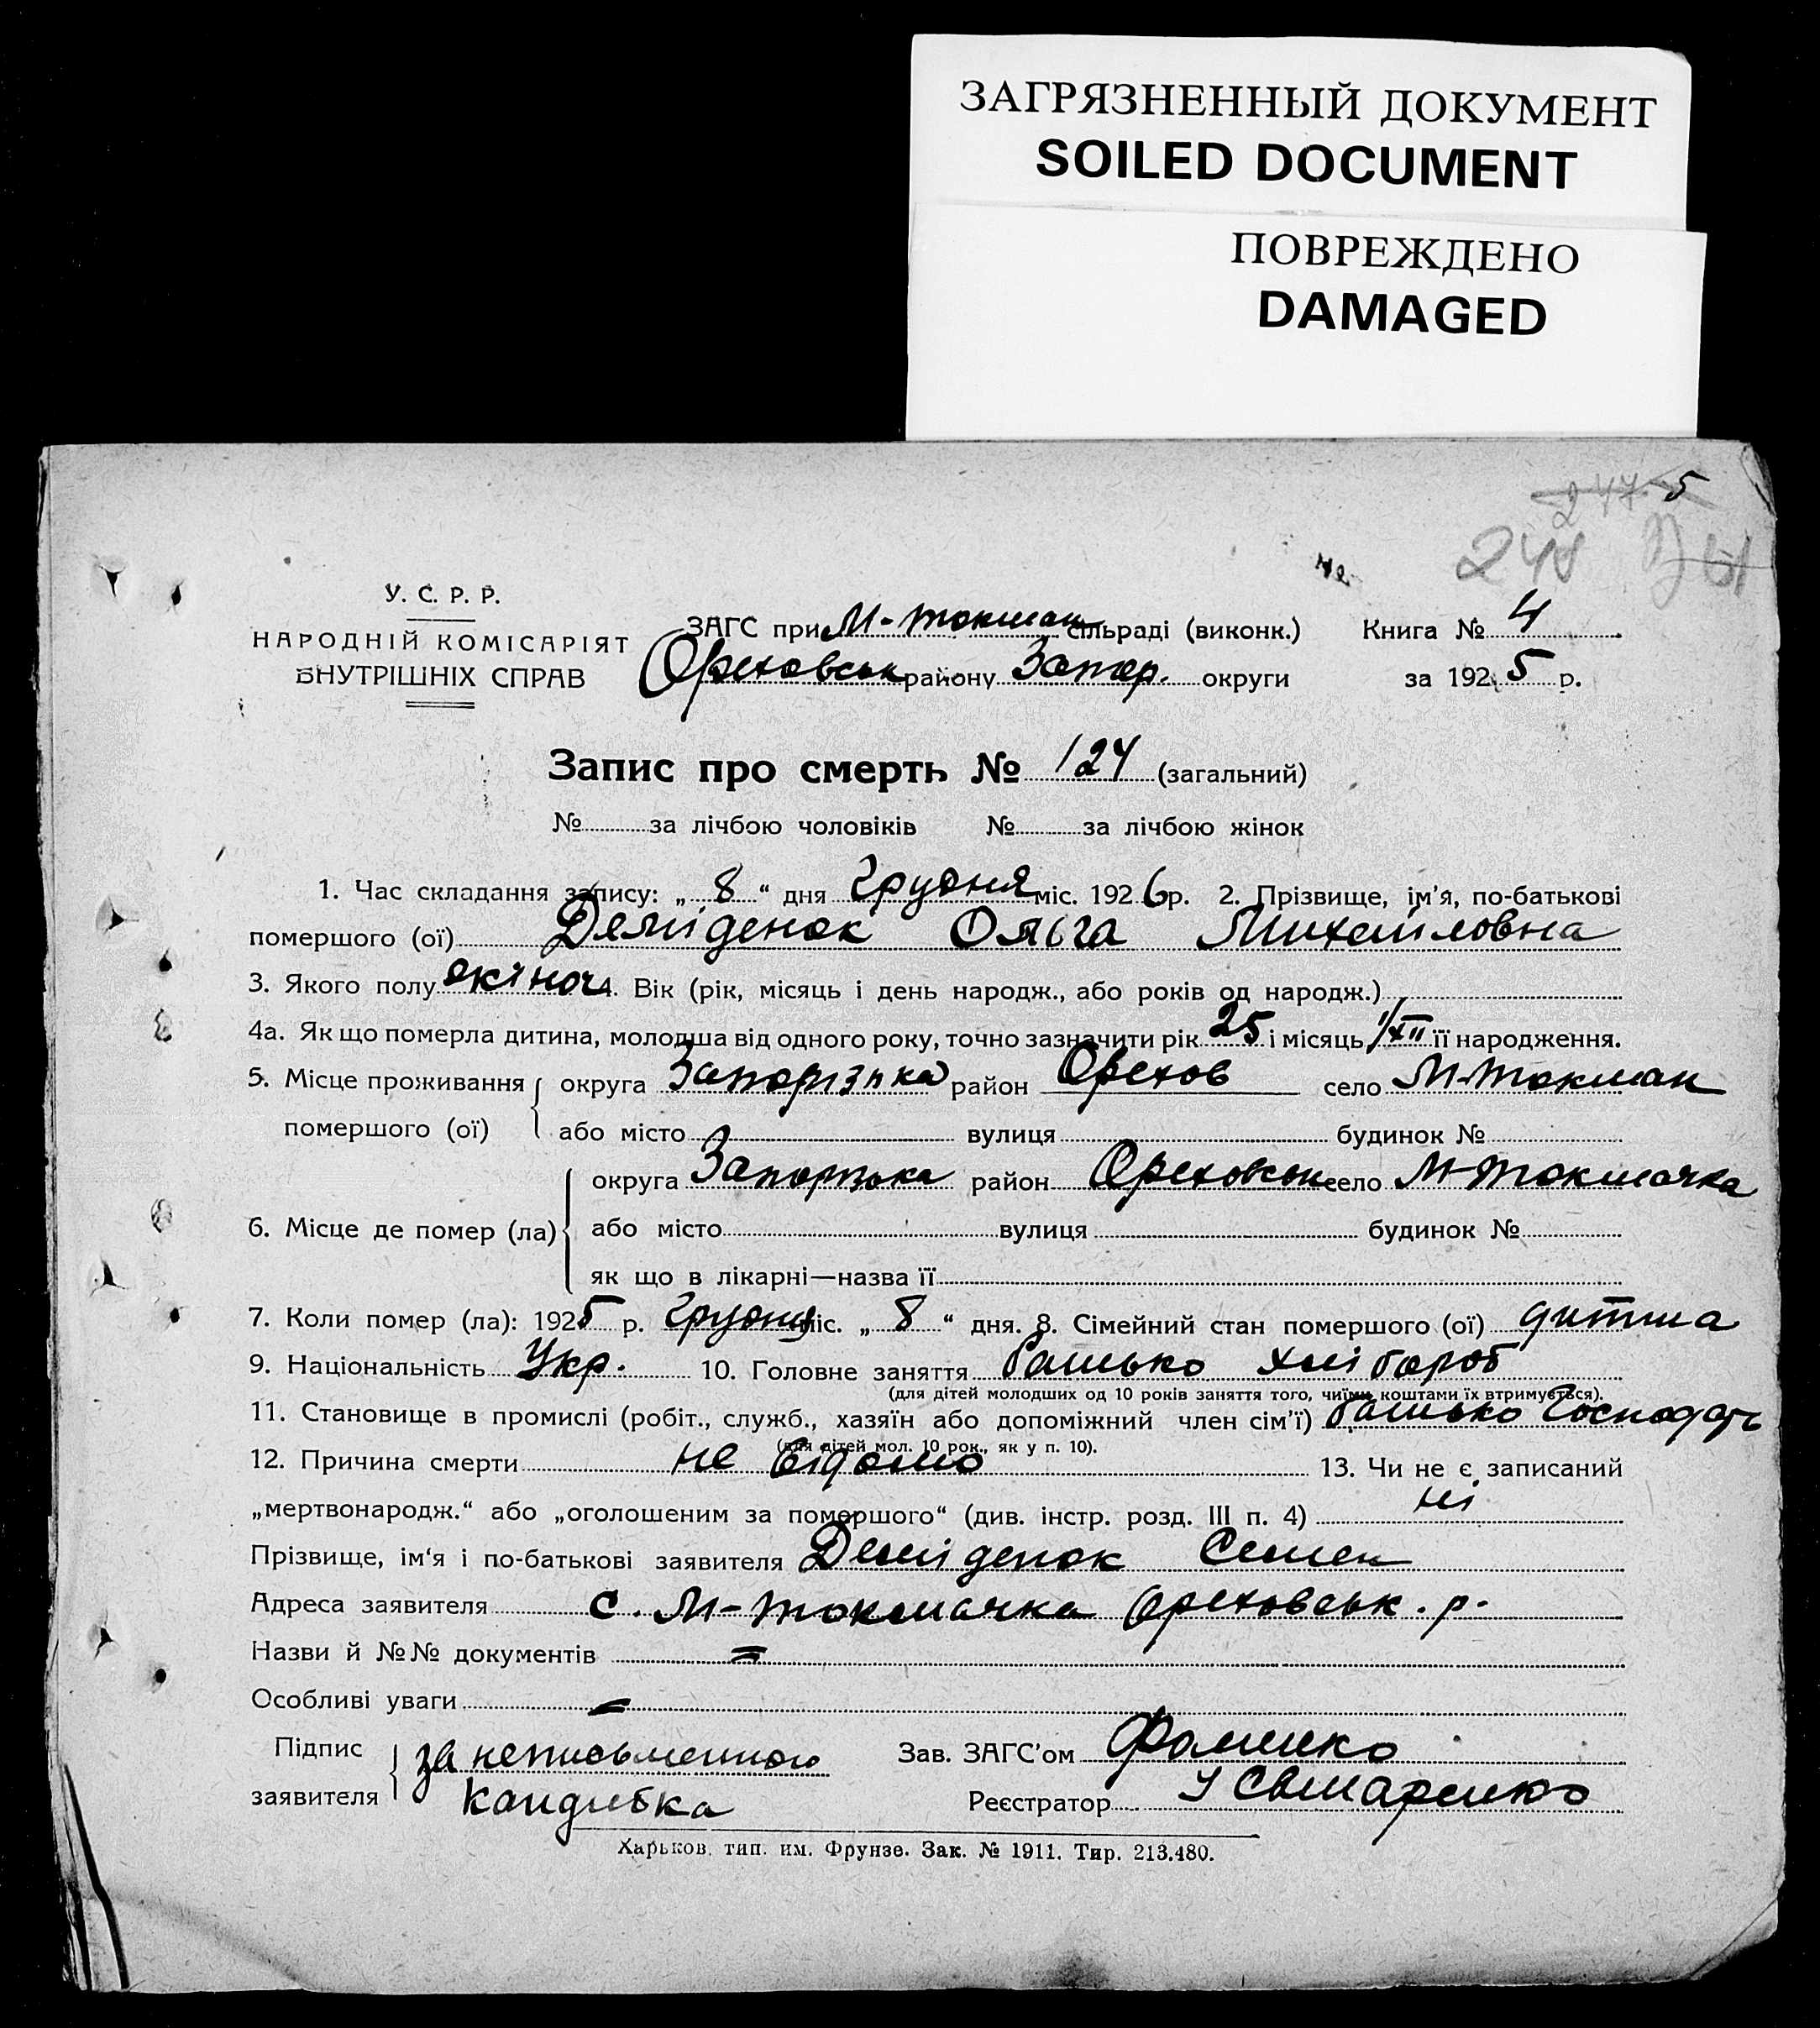 ЗАГРЯЗНЕННЫЙ ДОКУМЕНТ
SOILED DOCUMENT
ПОВРЕЖДЕНО
DAMAGED
247 5
У. С. Р. Р.
НАРОДНІЙ КОМІСАРІЯТ
ВНУТРІШНІХ СПРАВ
ЗАГС при М-Токмач сільраді (виконк.) Книга № 4
Ореховськ району Запор. округи за 1925 р.
Запис про смерть № 124 (загальний)
№ за лічбою чоловіків № за лічбою жінок
1. Час складання запису: „8“ дня Грудня міс. 1926 р. 2. Прізвище, ім'я, по-батькові
помершого (ої) Деміденок Ольга Михайловна
3. Якого полу жіноч 4. Вік (рік, місяць і день народж., або років од народж.)
4а. Як що померла дитина, молодша від одного року, точно зазначити рік 25 і місяць 1/XII її народження.
5. Місце проживання округа Запорізька район Орехов село М-Токмач
помершого (ої) або місто вулиця будинок №
округа Запорізька район Ореховськ село М-Токмачка
6. Місце де помер (ла) або місто вулиця будинок №
як що в лікарні—назва її
7. Коли помер (ла): 1925 р. Грудня міс. „8“ дня. 8. Сімейний стан помершого (ої) дитина
9. Національність Укр. 10. Головне заняття батько хлібороб
(для дітей молодших од 10 років заняття того, чиїми коштами їх втримується).
11. Становище в промислі (робіт., служб., хазяїн або допоміжний член сім'ї) батько Господарь
(для дітей мол. 10 рок., як у п. 10).
12. Причина смерти не відомо 13. Чи не є записаний
„мертвонародж.“ або „оголошеним за помершого“ (див. інстр. розд. III п. 4) ні
Прізвище, ім'я і по-батькові заявителя Деміденок Семен
Адреса заявителя с. М-Токмачка Ореховськ. р.
Назви й №№ документів =
Особливі уваги =
Підпис за неписьменного Зав. ЗАГС'ом Фоменко
заявителя Кандибка Реєстратор
Харьков. тип. им. Фрунзе. Зак. № 1911. Тир. 213.480.